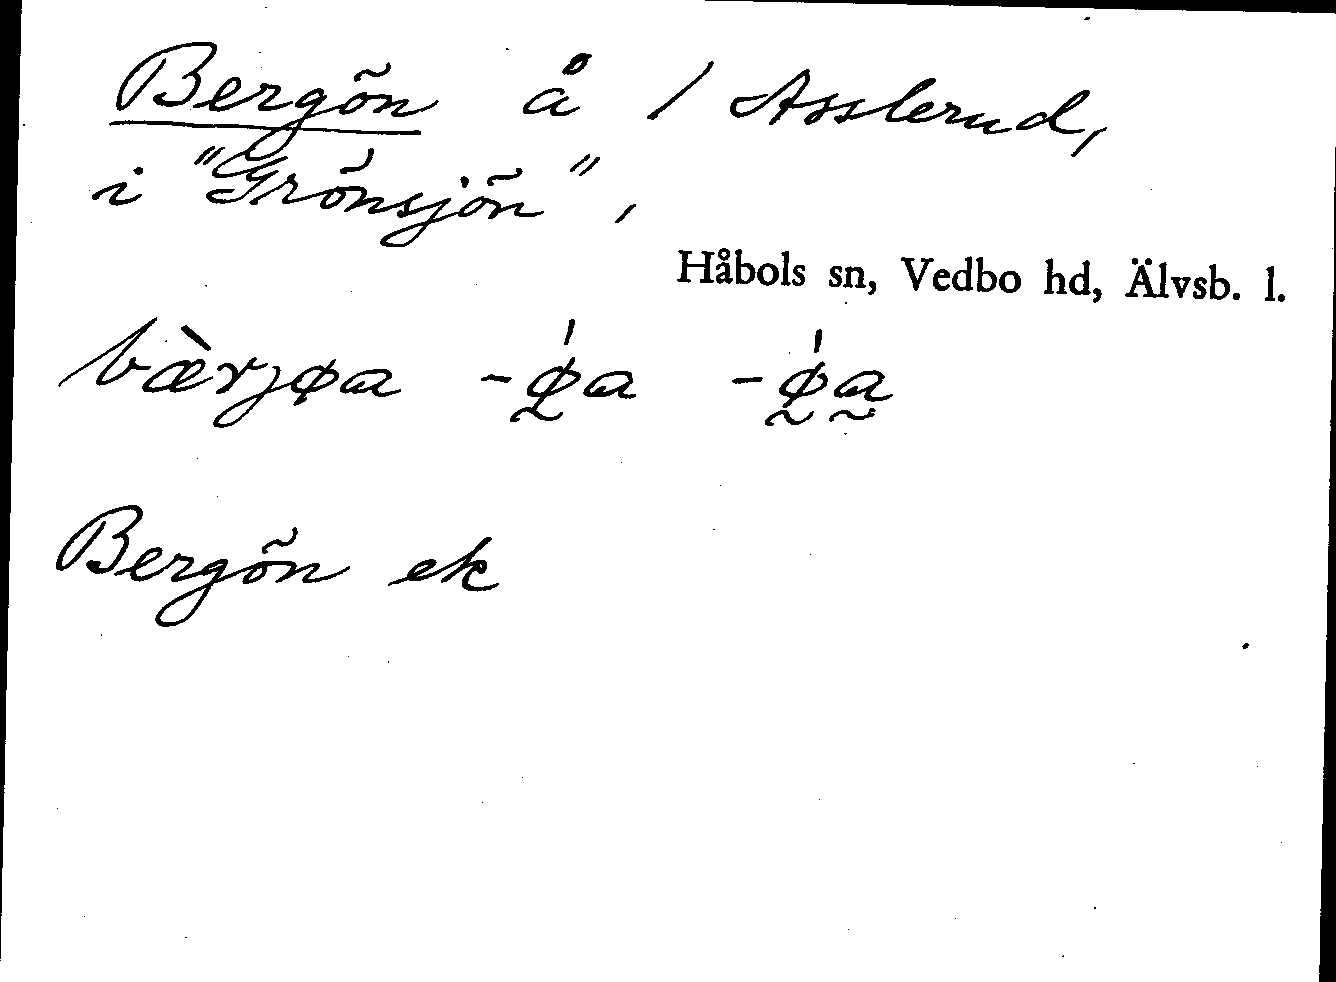 Bergön å / Asslerud,
i "Grönsjön",
Håbols sn, Vedbo hd, Älvsb. l.
bæ̀rjøa -ǿa -ǿa
Bergön ek